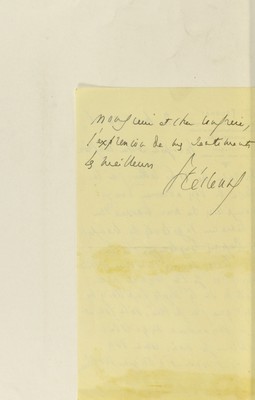 Monsieur et cher confrère,
l'expression de mes sentiments
les meilleurs